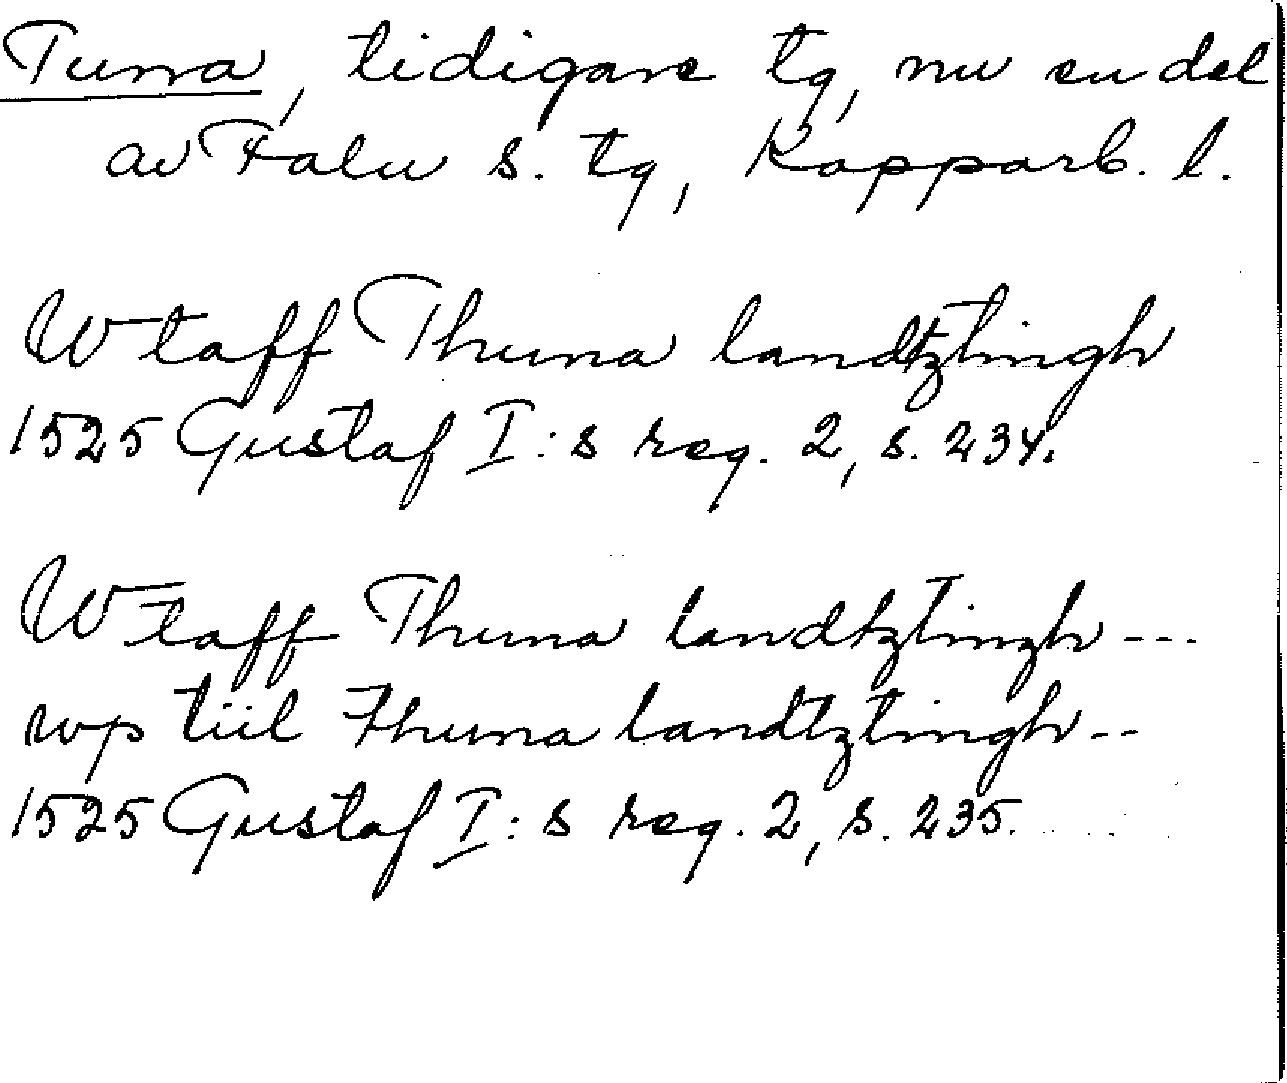 Tuna, tidigare tg, nu en del
av Falu s. tg, Kopparb. l.
Wtaff Thuna landtztingh
1525 Gustaf I:s reg. 2, s. 234.
Wtaff Thuna landtztingh ---
wp tiil Thuna landtztingh --
1525 Gustaf I:s reg. 2, s. 235.